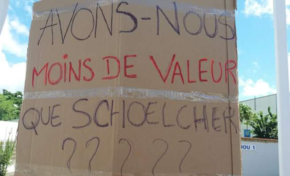 AVONS-NOUS
MOINS DE VALEUR
QUE SCHOELCHER
?????